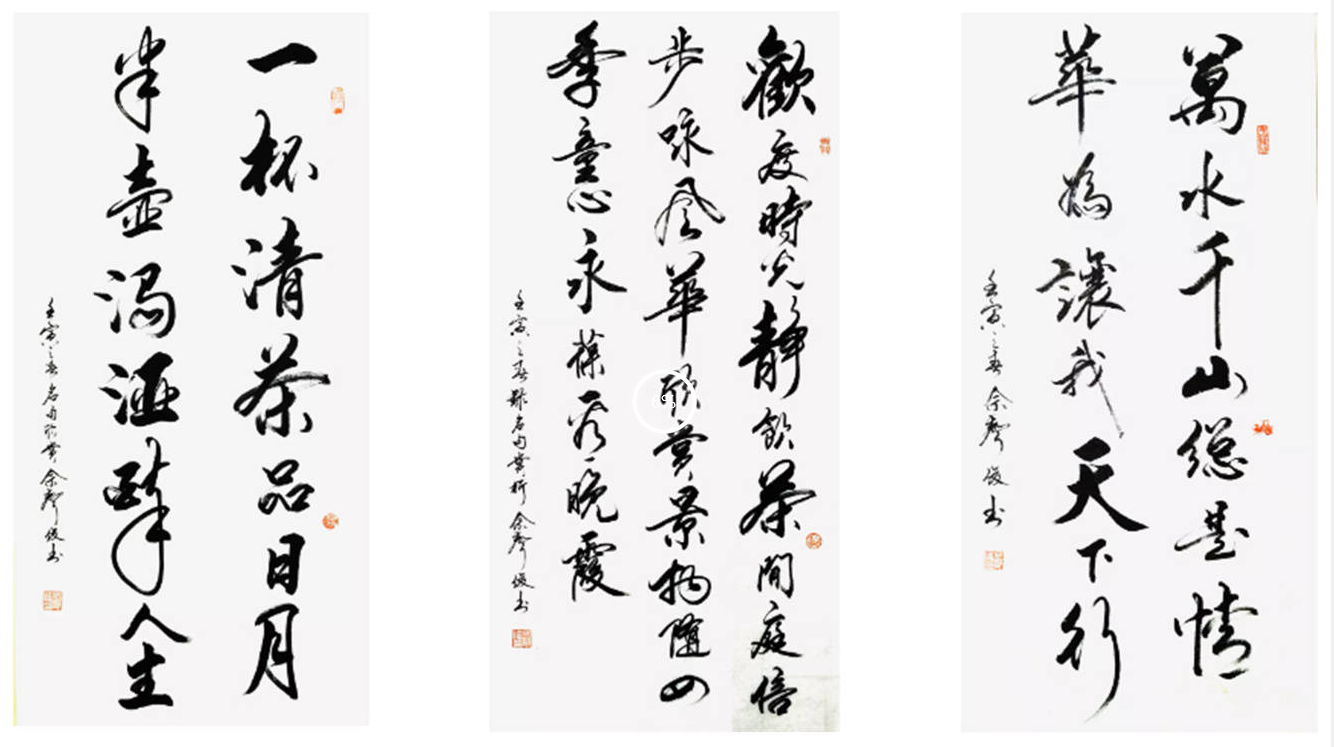 一杯清茶品日月
半壺濁酒醉人生
壬寅之春名句欣賞余俊书
歡度時光靜飲茶閒庭信
步咏風華欣賞景物随四
季童心永葆看晚霞
壬寅之春録名句賞析余俊书
萬水千山總是情
華為讓我天下行
壬寅之春余俊书